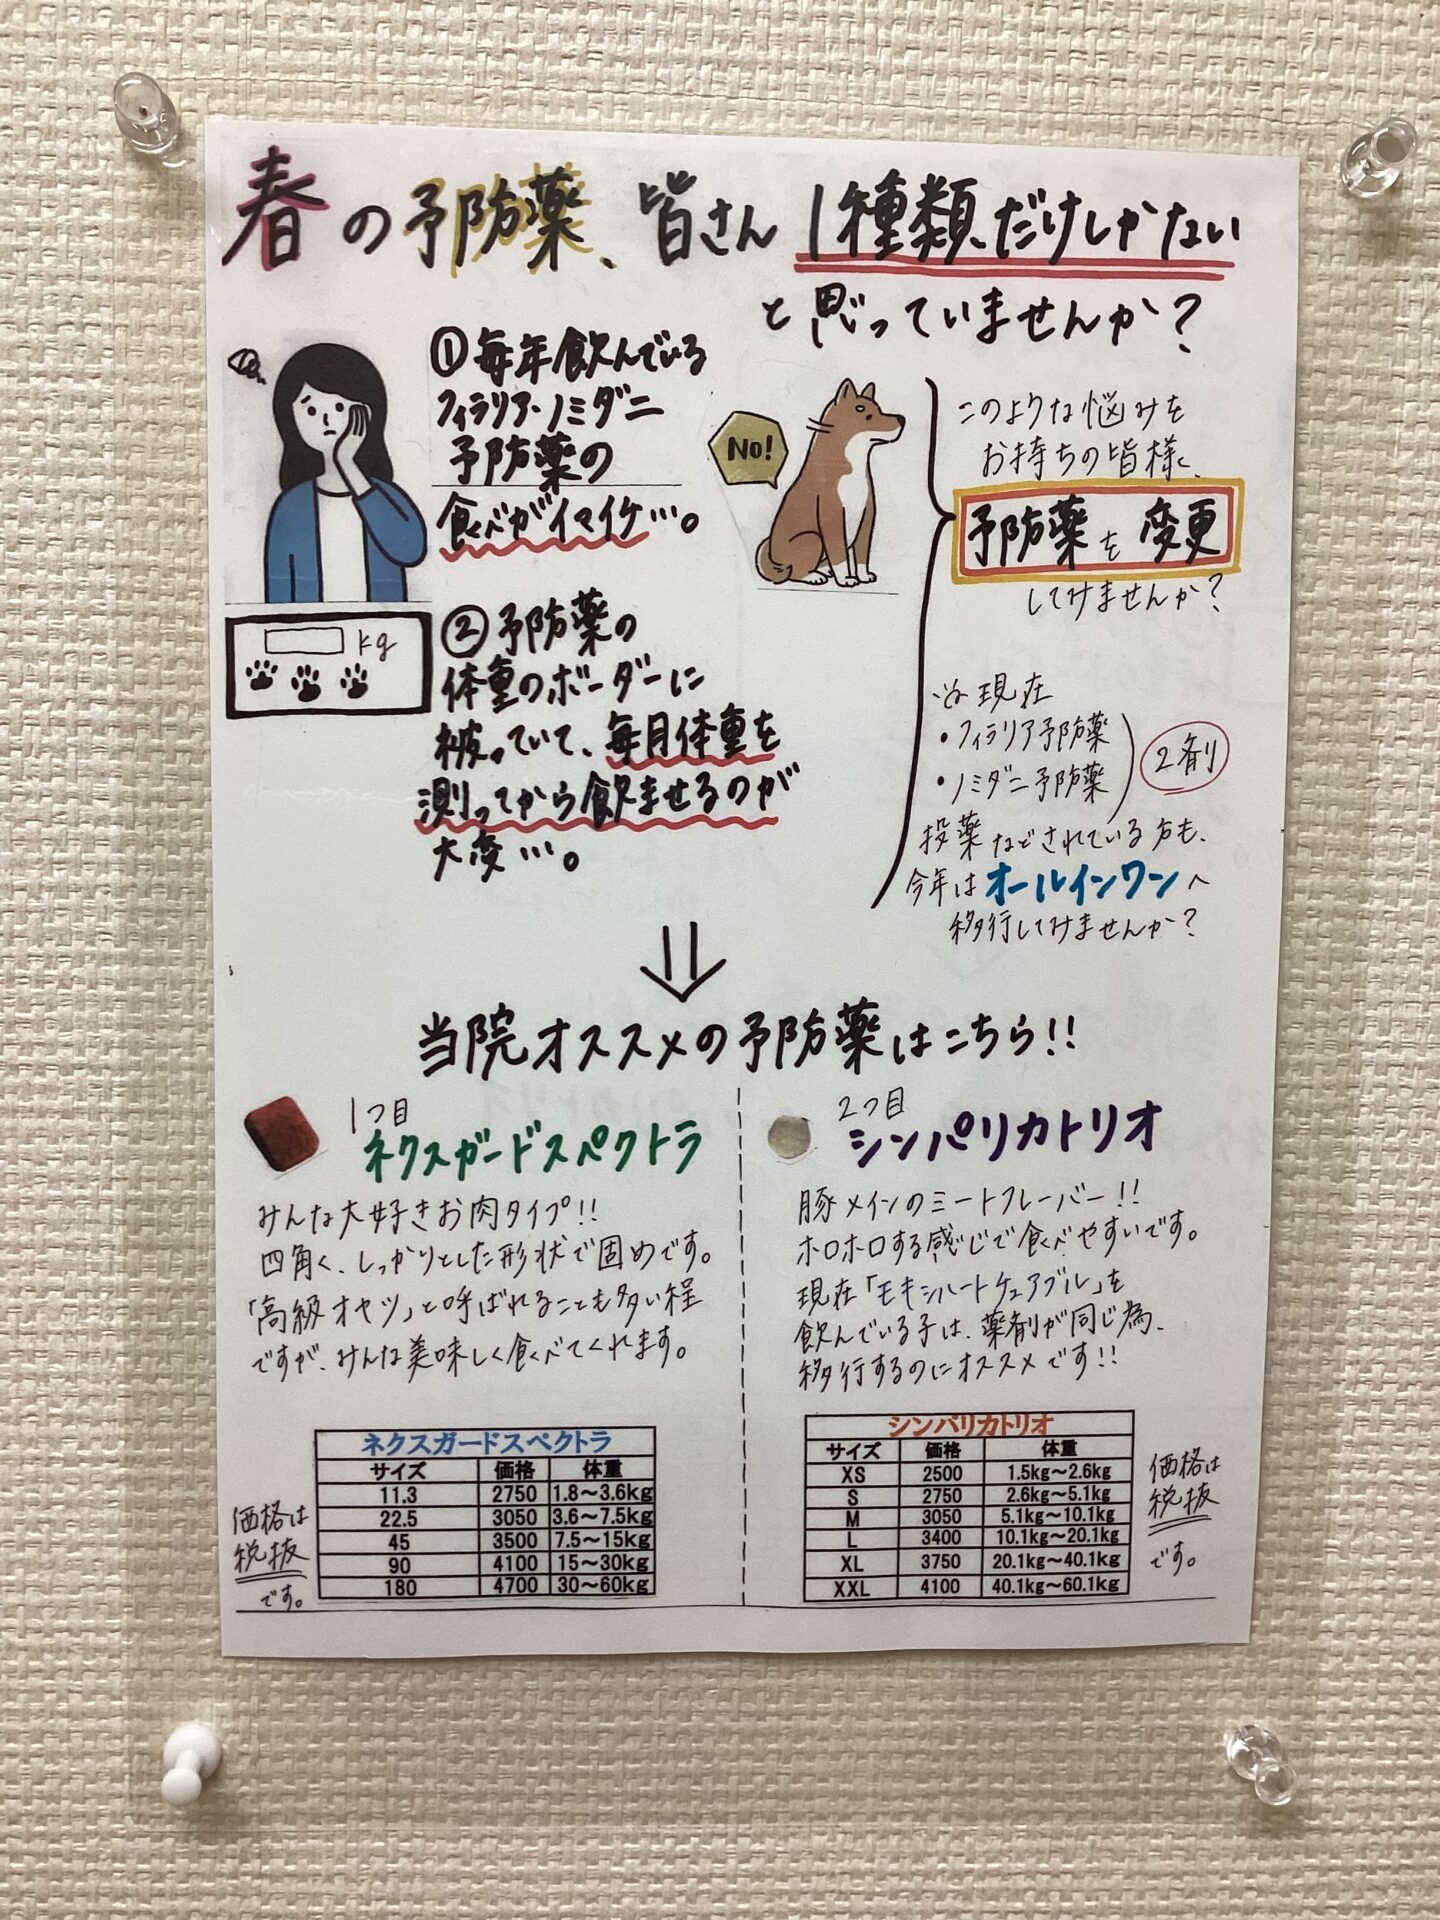 春の予防薬、皆さん1種類だけしかない
と思っていませんか?
①毎年飲んでいる
フィラリア・ノミダニ
予防薬の
食べがイマイチ…。
NO!
kg
②予防薬の
体重のボーダーに
被っていて、毎月体重を
測ってから飲ませるのが
大変…。
このような悩みを
お持ちの皆様、
予防薬を変更
してみませんか?
現在
・フィラリア予防薬
・ノミダニ予防薬
2剤
投薬などされている方も、
今年はオールインワンへ
移行してみませんか?
当院オススメの予防薬はこちら!!
1つ目
ネクスガードスペクトラ
みんな大好きお肉タイプ!!
四角く、しっかりとした形状で固めです。
「高級オヤツ」と呼ばれることも多い程
ですが、みんな美味しく食べてくれます。
ネクスガードスペクトラ
サイズ 価格 体重
11.3 2750 1.8~3.6kg
22.5 3050 3.6~7.5kg
45 3500 7.5~15kg
90 4100 15~30kg
180 4700 30~60kg
価格は
税抜
です。
2つ目
シンパリカトリオ
豚メインのミートフレーバー!!
ホロホロする感じで食べやすいです。
現在「モキシハートチュアブル」を
飲んでいる子は、薬剤が同じ為、
移行するのにオススメです!!
シンパリカトリオ
サイズ 価格 体重
XS 2500 1.5kg~2.6kg
S 2750 2.6kg~5.1kg
M 3050 5.1kg~10.1kg
L 3400 10.1kg~20.1kg
XL 3750 20.1kg~40.1kg
XXL 4100 40.1kg~60.1kg
価格は
税抜
です。